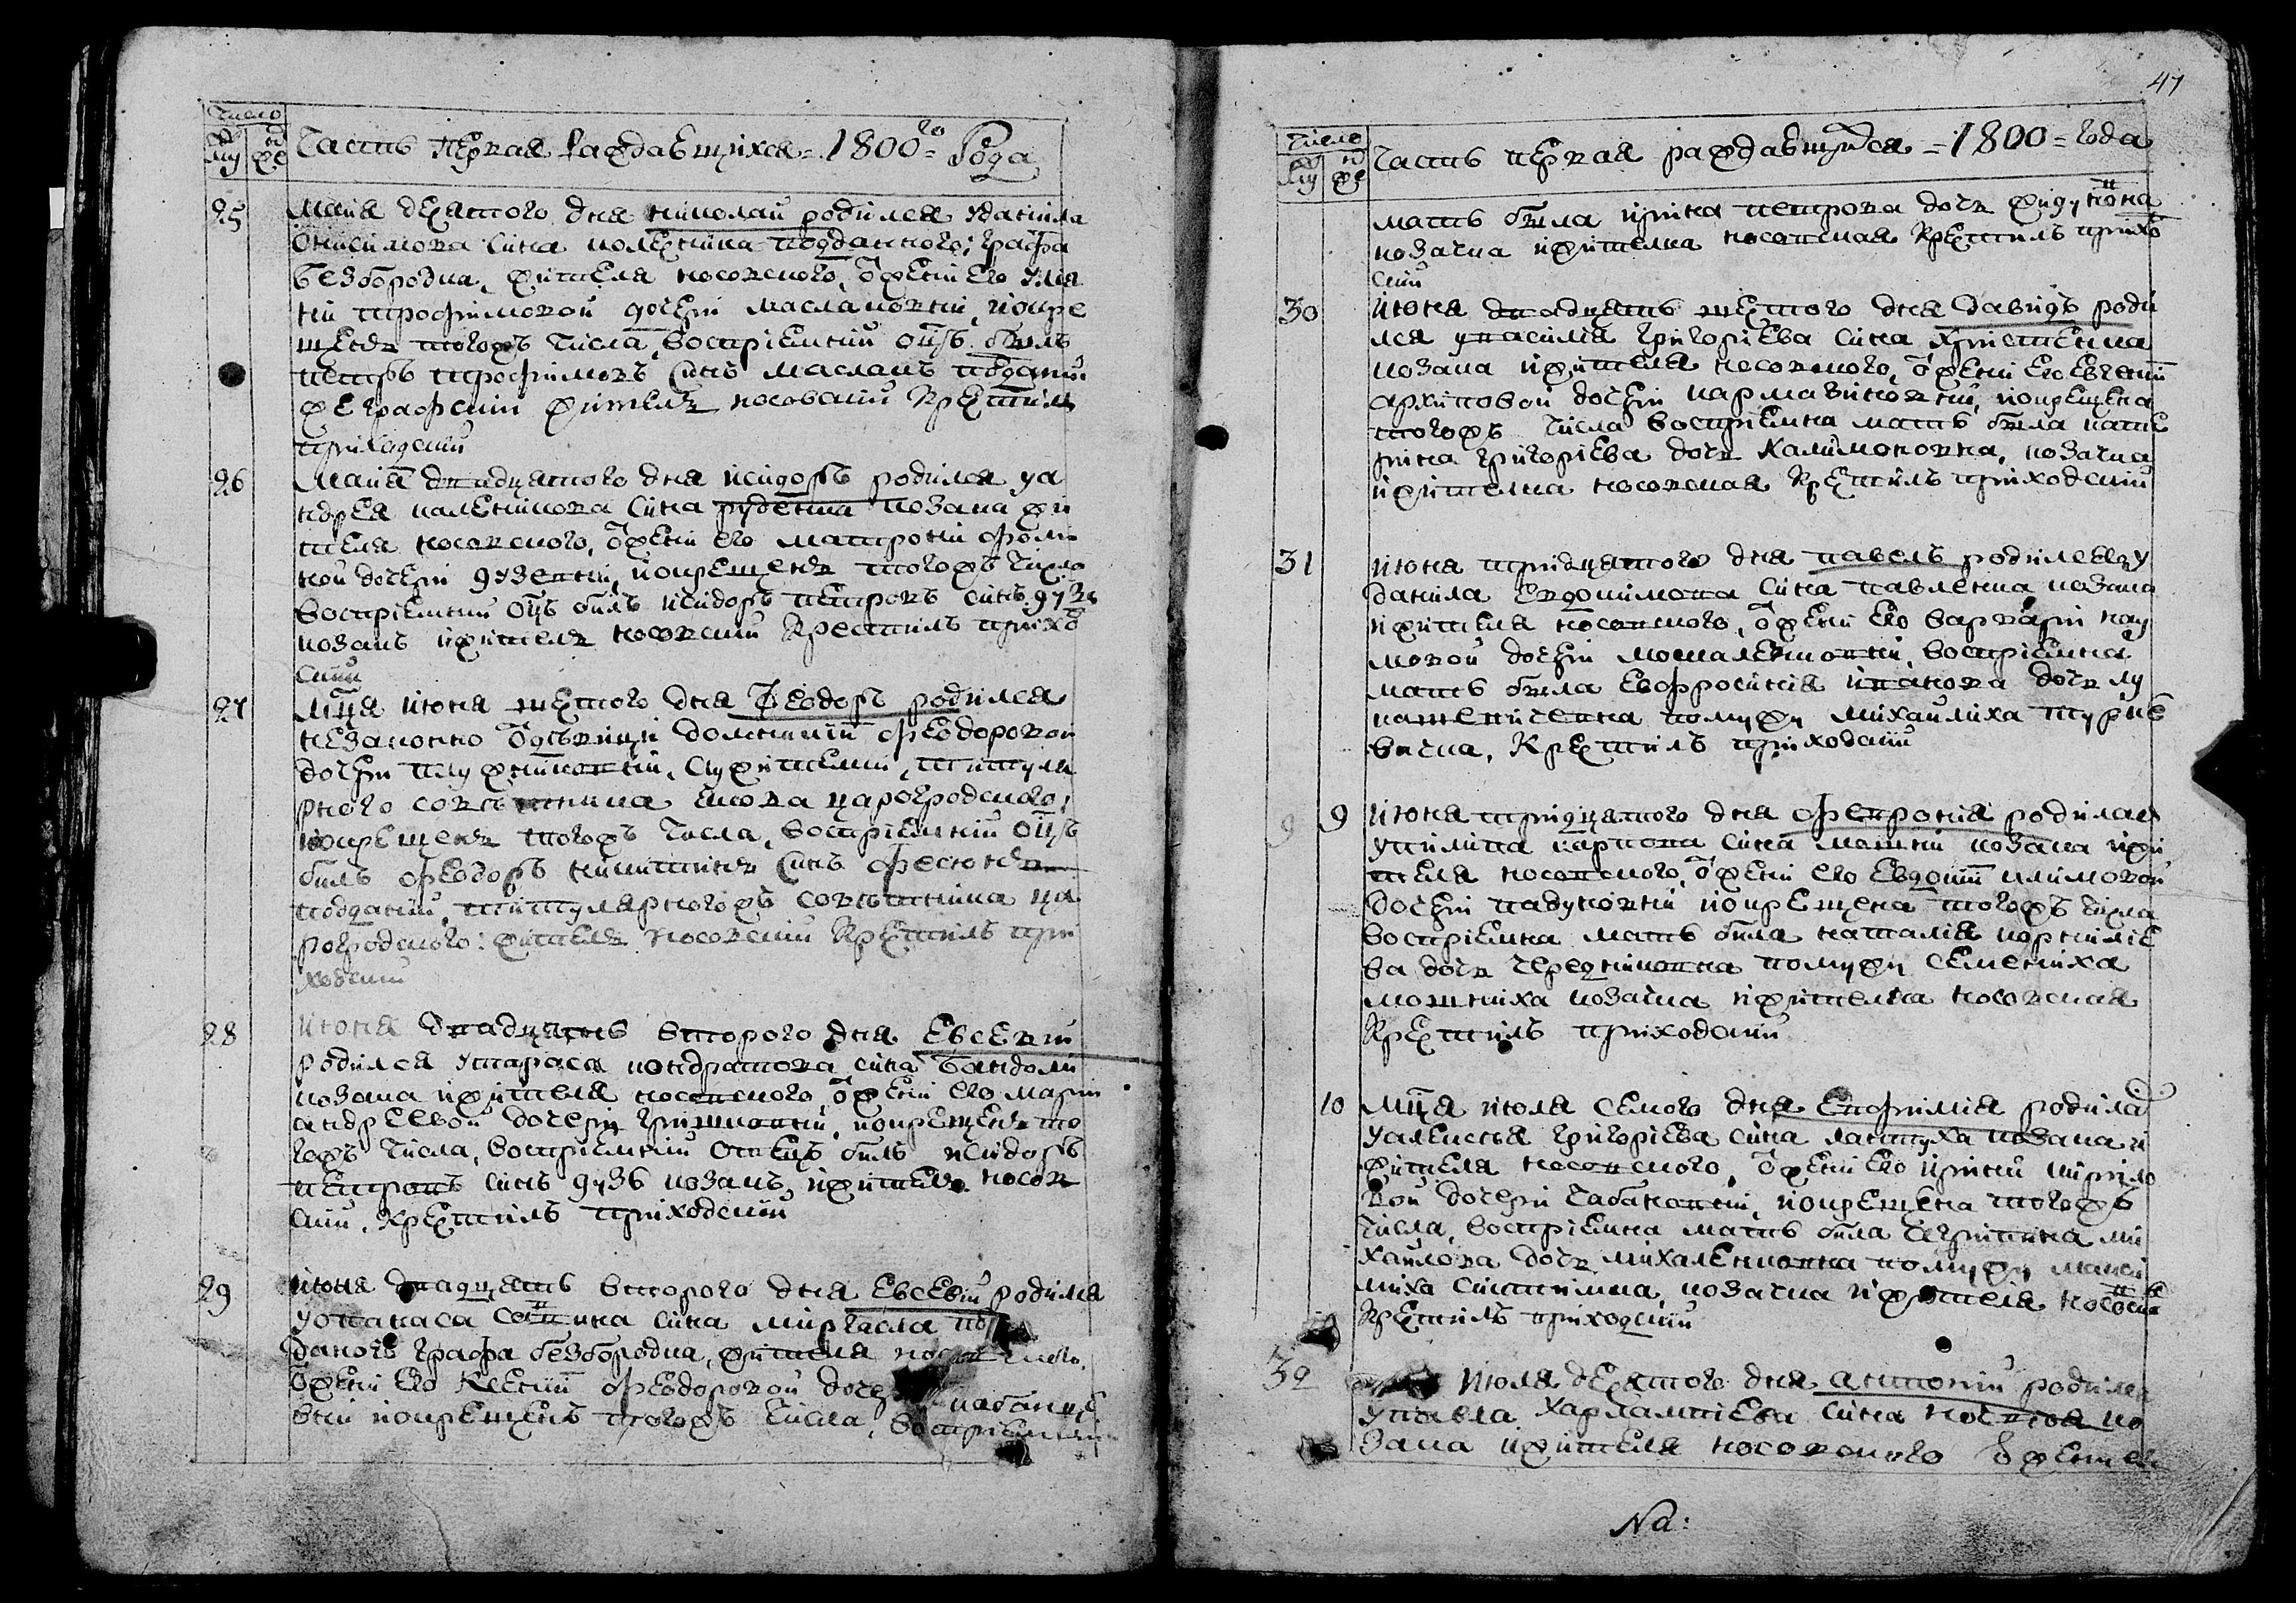 Число
му же
Часть первая раждавшихся = 1800го = Года
25 Маия девятого дня николай родился уданила
Онисимова сина колесника подданного: графа
безбородка, жителя носовского, ѿ жени его ули
ни трофимовой дочери маслаковни, икре
щенъ тогожъ числа, воспрiемний оцъ былъ
петръ трофимовъ синъ маслакъ подани
же графский жителъ носовский крестилъ
приходский
26 Маиа двадцятого дня исидоръ родился уа
ндрея
сина руденка козака жи
теля носовского, ѿ жени его матрони фоми
ной дочери дузенки, икрещенъ тогожъ числа
воспрiемний оцъ билъ исидоръ петровъ синъ дузь
козакъ ижителъ носовский крестилъ прихо
ский
27 Мця июня шестого дня Феодоръ родился
незаконно ѿ дѣвици домникий феодоровой
дочери
служителки, титуля
рного совѣтника
цароградского:
икрещенъ тогожъ числа, воспрiемний оцъ
билъ феодоръ никитинъ синъ
подданий, титулярногожъ совѣтника ца
роградского: жителъ носовский крестилъ при
ходский
28 июня двадцять второго дня Евсевий
родился утараса кондратова сина бандоли
козака ижителя носовского ѿ жени его марии
андреевой дочери гришковни, икрещенъ то
гожъ числа, воспрiемний отецъ билъ исидоръ
петровъ синъ дузь козакъ ижителъ носов
ский, крестилъ приходский
29 июня двадцять второго дня Евсевий родился
уопанаса
сина
по
даного графа безбородка, жителя носовского,
ѿ жени его ксении феодоровой дочери
вни икрещенъ тогожъ числа, воспрiемний
47
Число
му же
Часть первая раждавшихся = 1800 = года
мать била ирина петрова дочь
козачка ижителка носовская крестилъ прихо
ский
30 июня двадцять шестого дня Давидъ роди
лся укасима григорiева сина христенка
козака ижителя носовского, ѿ жени его евгении
архиповой дочери кармазиновни, икрещена
тогожъ числа воспрiемна мать била кате
рина григорiева дочь халимоновна, козачка
ижителка носовская крестилъ приходский
31 июня тридцятого дня павелъ родился у
данила евдокимова сина павленка козака
ижителя носовского, ѿ жени его варвари нау
мовой дочери москаленковни, воспрiемна
мать била евфросиния иванова дочь лу
помужу михайлиха туров
ская, крестилъ приходский
9 июня тридцятого дня феврония родилас
упилипа карпова сина мошни козака ижи
теля носовского, ѿ жени его евдокии климовой
дочери падуновни икрещена тогожъ числа
воспрiемна мать била наталия корнилiе
ва дочь чередниковна помужу семениха
мошниха козачка ижителка носовская
крестилъ приходский
10 Мця июля семого дня Евфимiя родилас
уалексѣя григорiева сина лапшуха козака и
жителя носовского, ѿ жени его ирини кирило
вой дочери чабановни, икрещена тогожъ
числа, воспрiемна мать била
ми
хайлова дочь михаленковна помужу макси
миха
козачка ижителка носовска
крестилъ приходский
32 июля девятого дня антоний родился
упавла харлампiева сина
ко
зака ижителя носовского ѿ жени его
На: